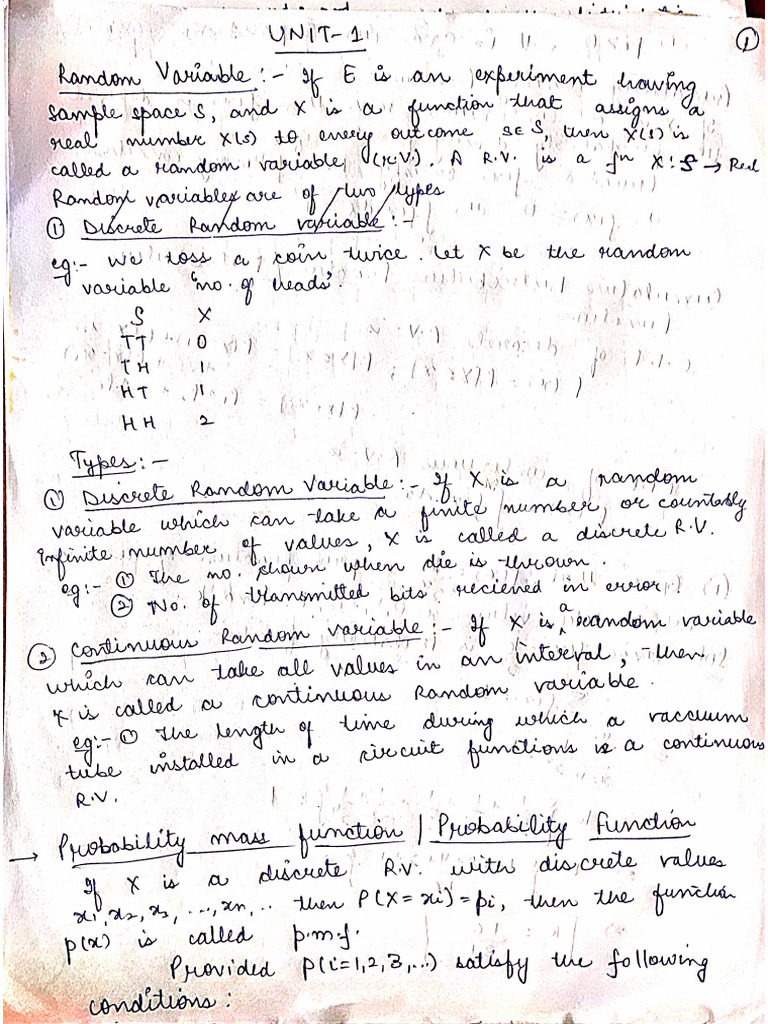 UNIT-1
①
Random Variable :- If E is an experiment having
sample space S, and X is a function that assigns a
real number X(s) to every outcome s∈S, then X(s) is
called a random variable (r.V.). A R.V. is a fn X: S → Real
Random variables are of two types
① Discrete Random variable :-
eg:- We toss a coin twice. Let X be the random
variable 'no. of heads'.
S X
TT 0
TH 1
HT 1
HH 2
Types :-
① Discrete Random Variable :- If X is a random
variable which can take a finite number, or countably
infinite number of values, X is called a discrete R.V.
eg:- ① The no. shown when die is thrown.
② No. of transmitted bits recieved in error.
② Continuous Random variable :- If X is a random variable
which can take all values in an interval, then
X is called a continuous Random variable.
eg:- ① The length of time during which a vaccuum
tube installed in a circuit functions is a continuous
R.V.
→ Probability mass function | Probability Function
If X is a discrete R.V. with discrete values
x1, x2, x3, ..., xn, .. then P(X = xi) = pi, then the function
p(x) is called p.m.f.
Provided p(i=1,2,3,...) satisfy the following
conditions :